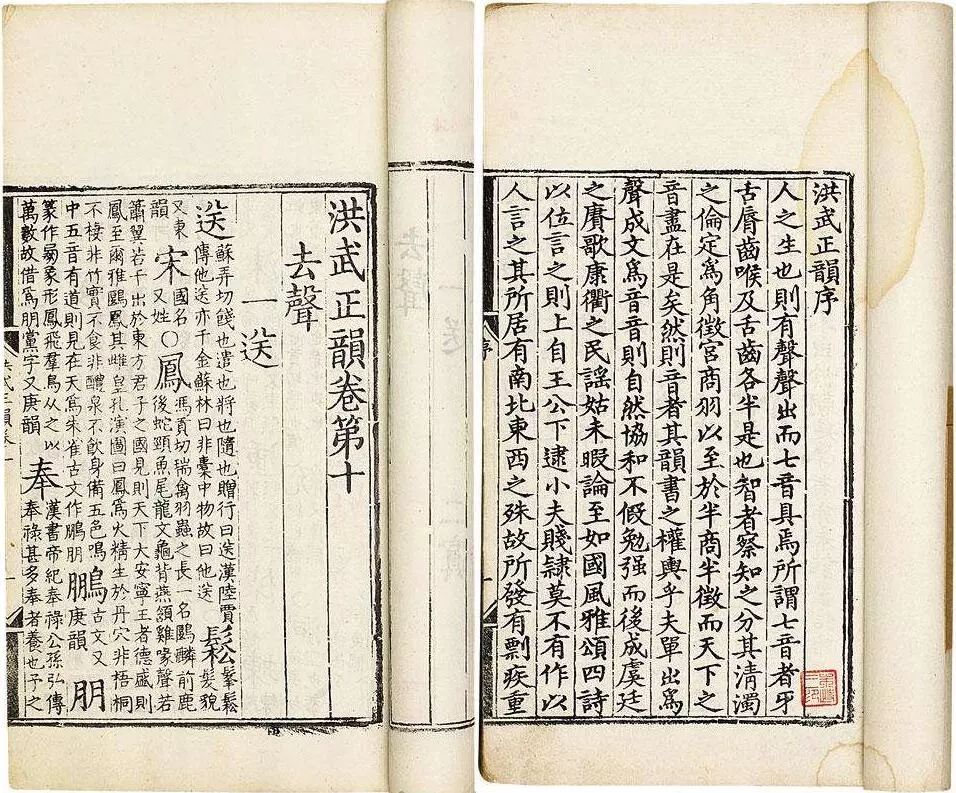 洪武正韻序
人之生也則有聲聲出而七音具焉所謂七音者牙
舌脣齒喉及舌齒各半是也智者察知之分其清濁
之倫定爲角徵宮商羽以至於半商半徵而天下之
音盡在是矣然則音者其韻書之權輿乎夫單出爲
聲成文爲音音則自然協和不假勉强而後成虞廷
之賡歌康衢之民謠姑未暇論至如國風雅頌四詩
以位言之則上自王公下逮小夫賤隷莫不有作以
人言之其所居有南北東西之殊故所發有剽疾重
序
洪武正韻卷第十
去聲
一送
送蘇弄切餞也遣也將也隨也贈行曰送漢陸賈傳他送亦千金蘇林曰非槖中物故曰他送鬆鬆髮貌
又東韻宋國名又姓○鳳馮貢切瑞禽羽蟲之長一名鶠麟前鹿後蛇頸魚尾龍文龜背燕頷雞喙聲若
簫翼若干出於東方君子之國見則天下大安寧王者德盛則鳳至爾雅鶠鳳其雌皇孔演圖曰鳳爲火精生於丹穴非梧桐
不棲非竹實不食非醴泉不飲身備五色鳴中五音有道則見在天爲朱雀古文作鵬朋鵬古文又庚韻朋
篆作象形鳳飛羣鳥從之以萬數故借爲朋黨字又庚韻奉漢書帝紀奉祿公孫弘傳奉祿甚多奉者養也子之